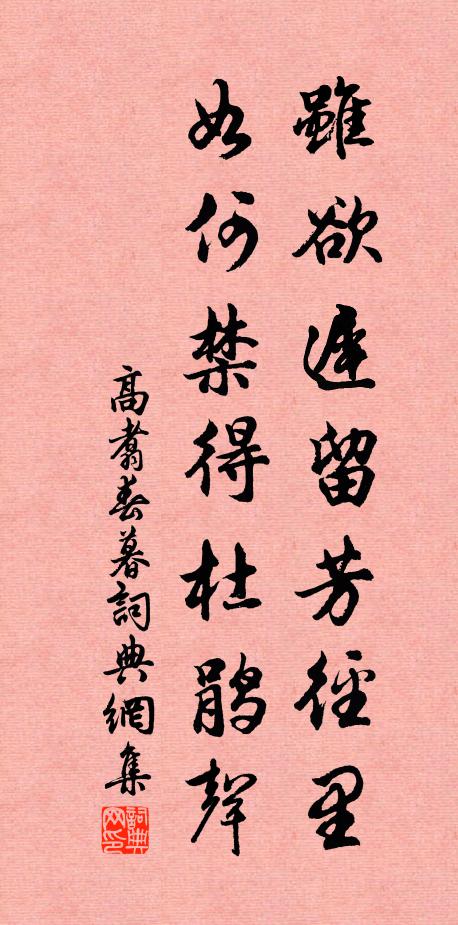 雖欲遲留芳徑里
如何禁得杜鵑聲
高翥春暮詞典網集
詞典网印